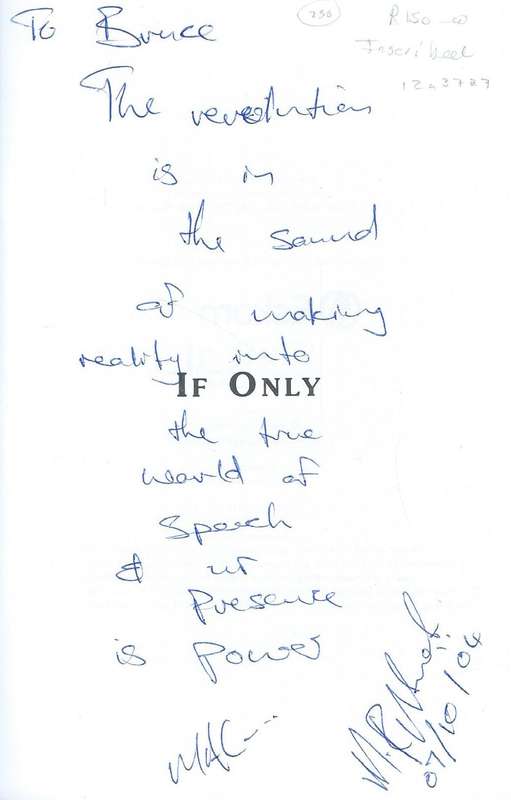 To Bruce
250
R150-00
Inscribed
12a3727
The revolution
is in
the sound
of making
reality into
IF ONLY
the true
world of
Speech
& ur
Presence
is Power
07/10/04